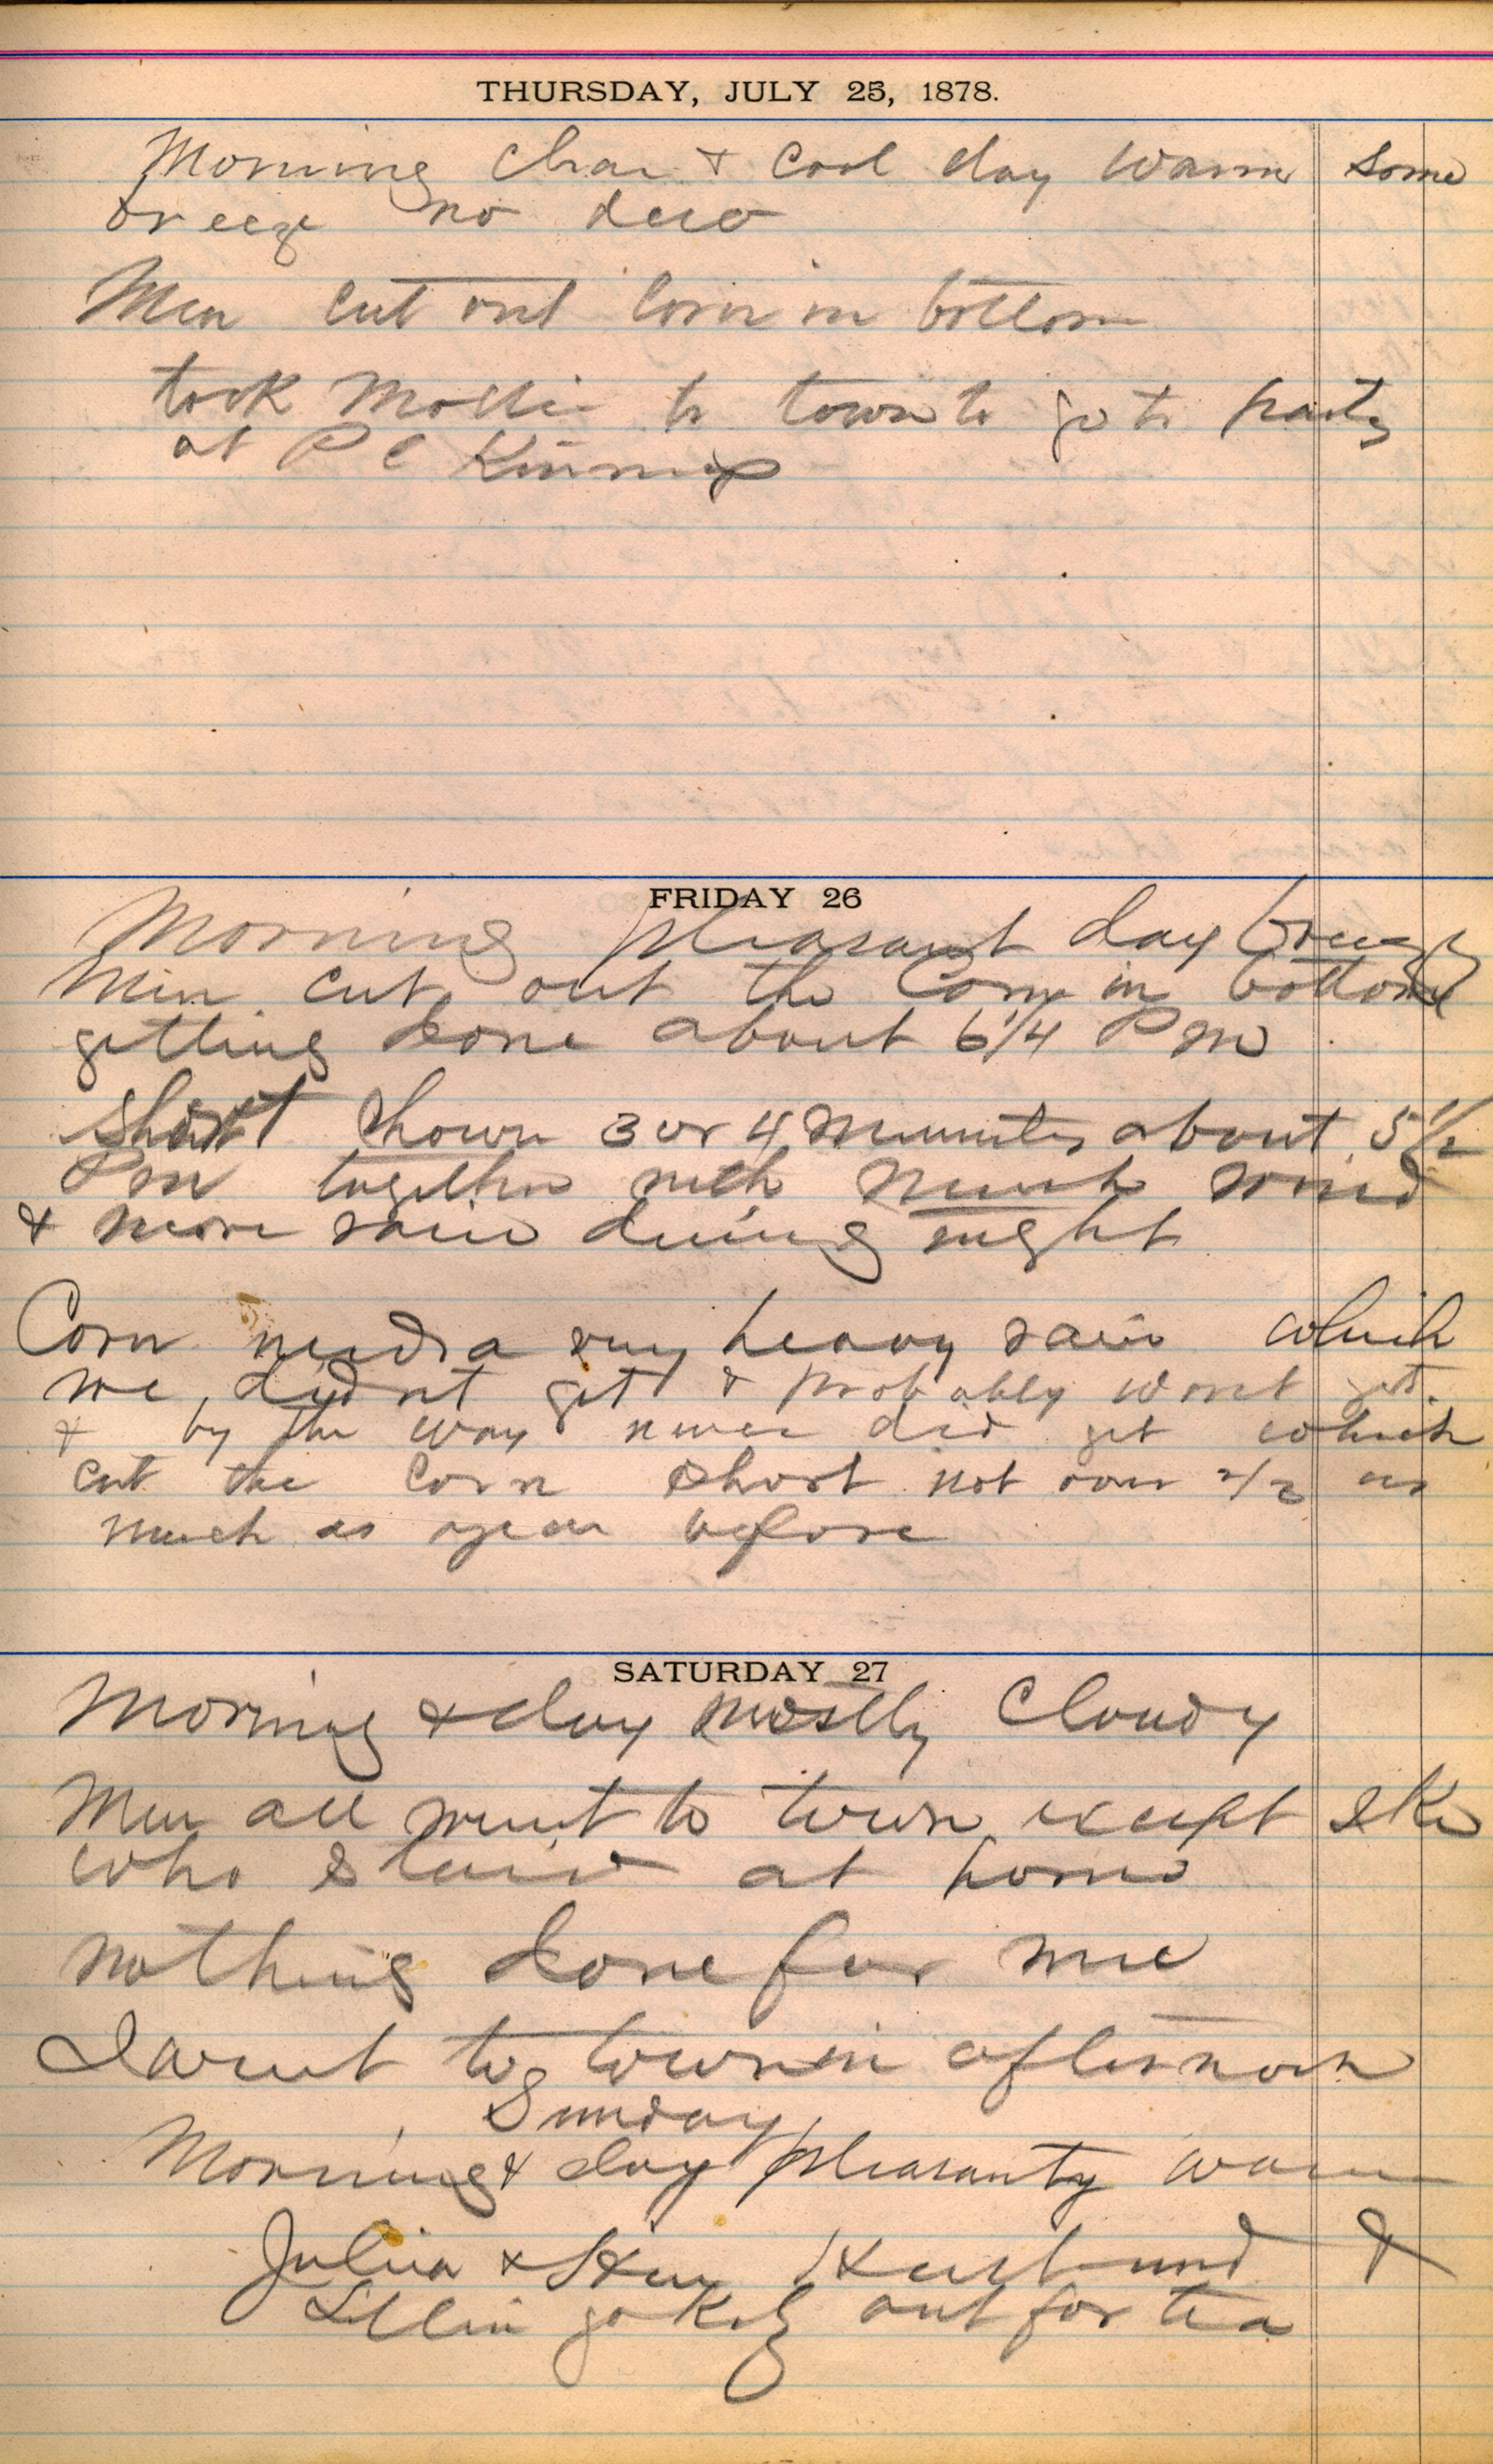 THURSDAY, JULY 25, 1878.
Morning Clear & Cool day Warm some
breeze no dew
Men Cut out Corn in bottom
took Mollie to town to go to party
at P C
FRIDAY 26
Morning pleasant day breezy
Men Cut out the Corn in bottom
getting done about 6 1/4 P m
short shower 3 or 4 Minutes about 5 1/2
Pm together with Much wind
& more rain during night
Corn needs a very heavy rain which
we didnt get & probably wont get
& by the way never did get which
cut the Corn short not over 2/3 as
much as year before
SATURDAY 27
Morning & day mostly Cloudy
Men all went to town except Ike
who staid at home
nothing done for me
I went to town in afternoon
Sunday
Morning & day pleasanty warm
Julia & Husband &
Lillie out for tea